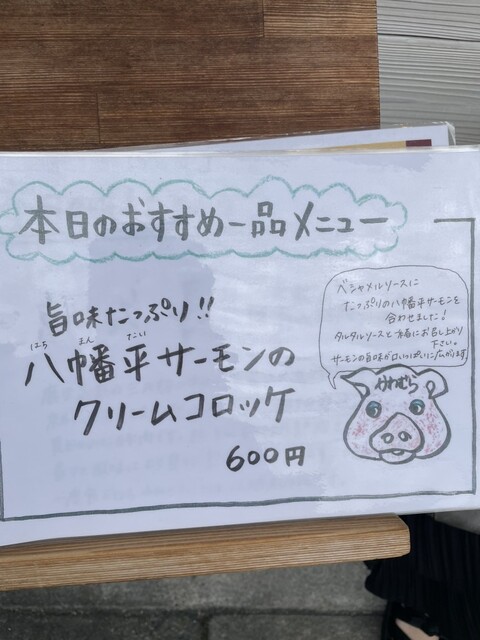 本日のおすすめ一品メニュー
旨味たっぷり!!
はち まん たい
八幡平サーモンの
クリームコロッケ
600円
ベシャメルソースに
たっぷりの八幡平サーモンを
合わせました!
タルタルソースと一緒にお召し上り
下さい。
サーモンの旨味が口いっぱいに広がります
かわむら